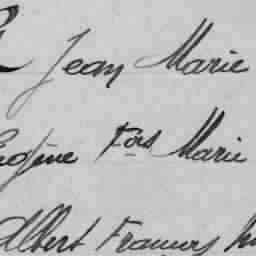 Jean Marie
Eugène Fois Marie
Albert François